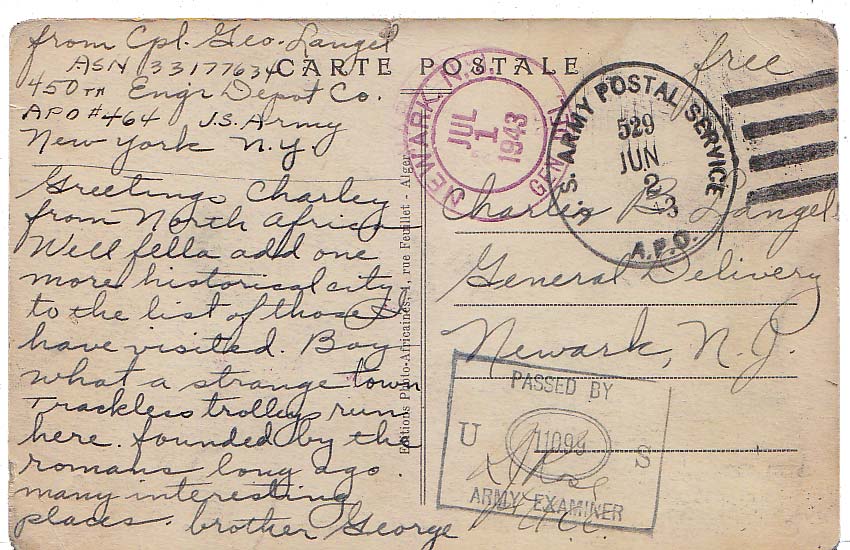 from Cpl. Geo. Langel
ASN 33177634
450TH Engr Depot Co.
APO #464 U.S. Army
New York N.Y.
Greetings Charley
from North Africa
Well fella add one
more historical city
to the list of those I
have visited. Boy
what a strange town
Trackless trolleys run
here. founded by the
romans long ago.
many interesting
places. brother George
CARTE POSTALE
Editions Photo-Africaines, 4, rue Feuillet - Alger
NEWARK, N.J.
JUL
1
1943
GEN.
U.S. ARMY POSTAL SERVICE
529
JUN
2
43
A.P.O.
free
Charles R. Langel
General Delivery
Newark, N.J.
PASSED BY
U S
11099
ARMY EXAMINER